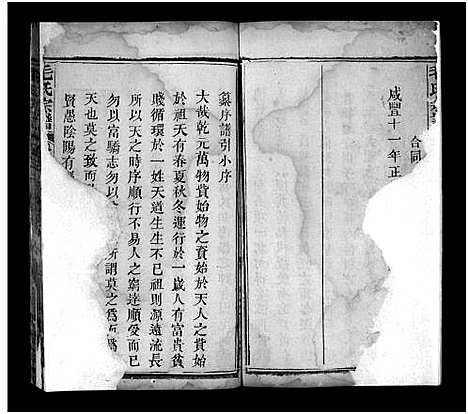 毛氏宗
合同
咸豐十一年正
纂序譜引小序
大哉乾元萬物資始物之資始於天人之資始
於祖天有春夏秋冬運行於一歲人有富貴貧
賤循環於一姓天道生生不已祖則源遠流長
本於天之時序順行不易人之窮達順受而已
勿以富驕志勿以
所謂莫之為而為
天也莫之致而
賢愚陰陽有
毛氏宗譜